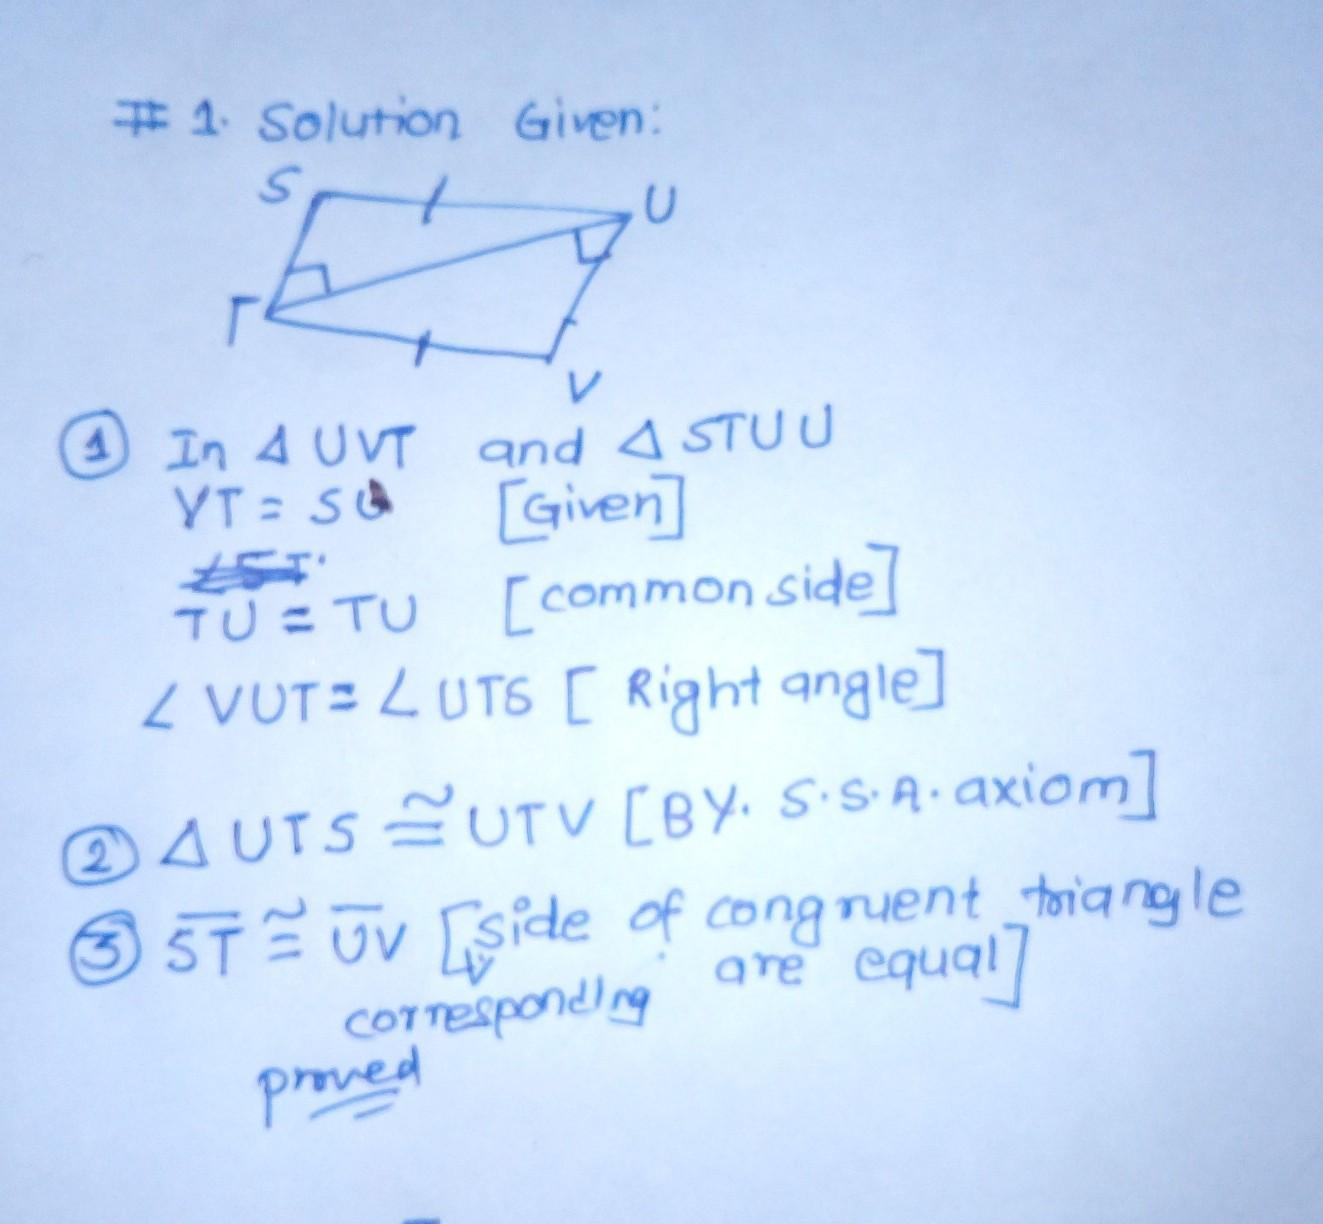 # 1. Solution Given:
S
U
T
V
① In Δ UVT and Δ STU U
VT = SU [Given]
TU = TU [common side]
∠ VUT = ∠ UTS [Right angle]
② Δ UTS ≅ UTV [BY. S.S.A. axiom]
③ S̅T̅ ≅ U̅V̅ [side of congruent triangle
are equal]
corresponding
proved